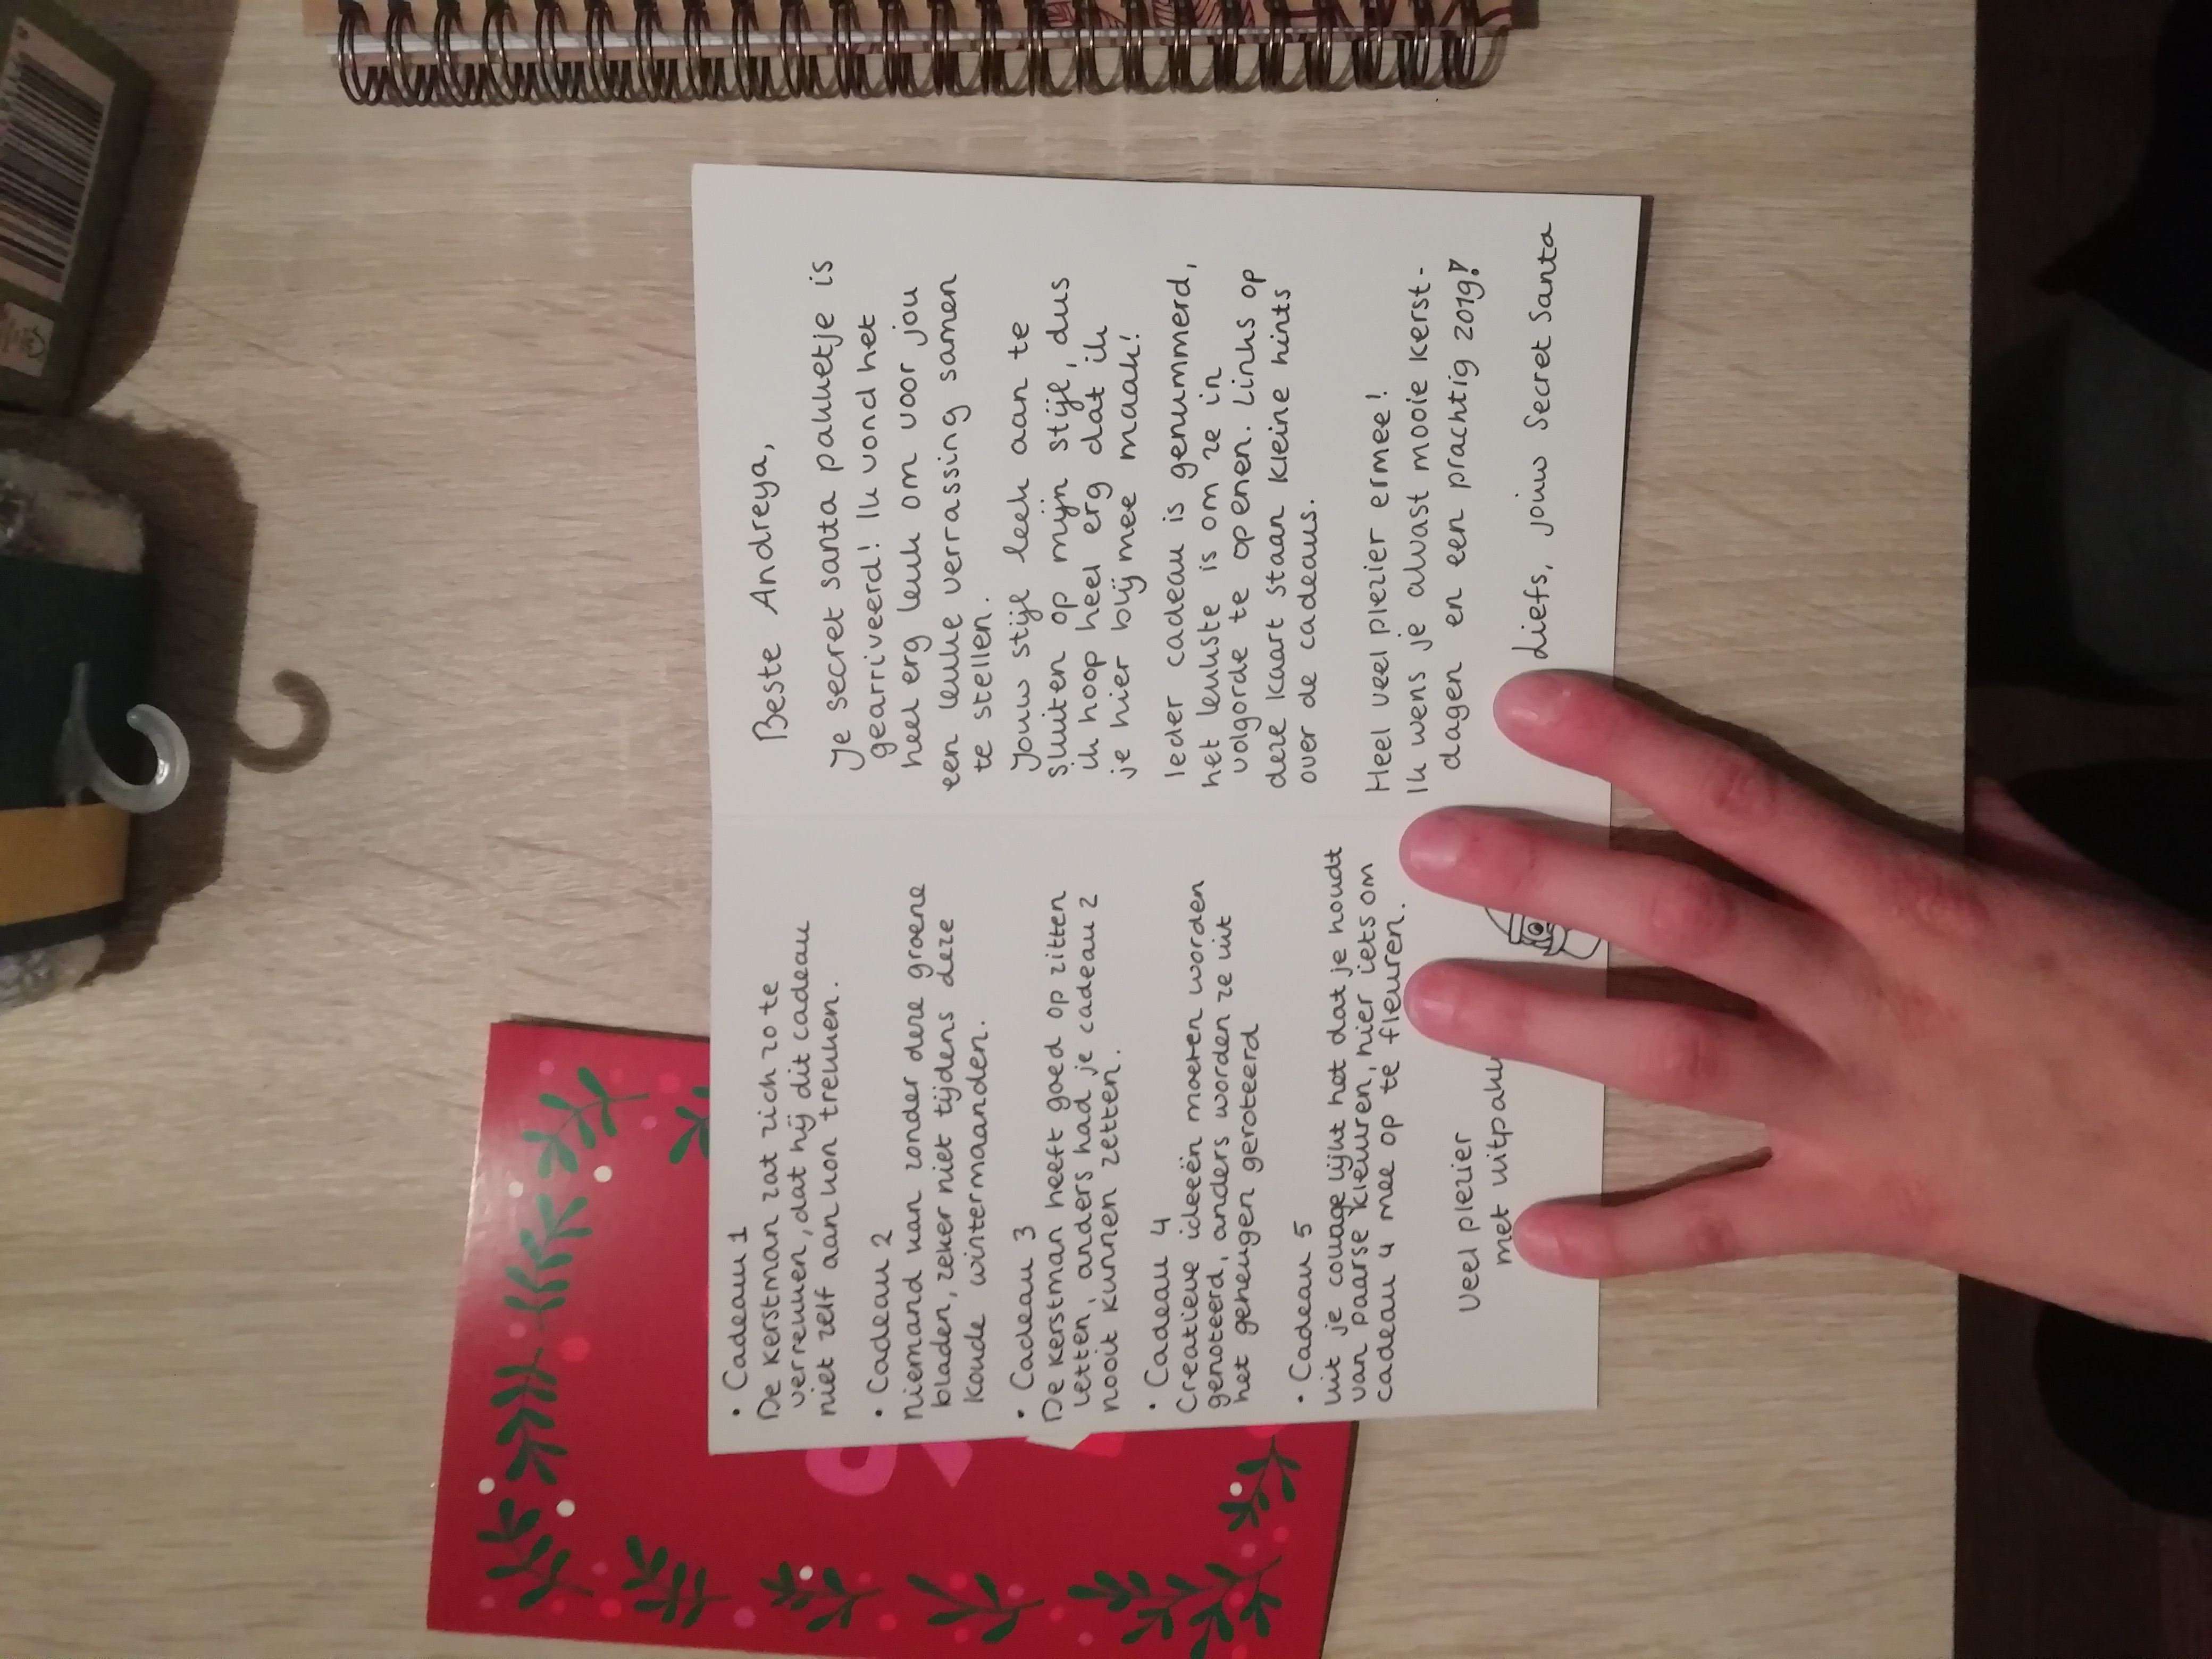 • Cadeau 1
De kerstman zat zich zo te
verrekken, dat hij dit cadeau
niet zelf aan kon trekken.
• Cadeau 2
Niemand kan zonder deze groene
bladen, zeker niet tijdens deze
koude wintermaanden.
• Cadeau 3
De kerstman heeft goed op zitten
letten, anders had je cadeau 2
nooit kunnen zetten.
• Cadeau 4
Creatieve ideeën moeten worden
genoteerd, anders worden ze uit
het geheugen geroteerd
• Cadeau 5
Uit je collage lijkt het dat je houdt
van paarse kleuren, hier iets om
cadeau 4 mee op te fleuren.
Veel plezier
met uitpakk
Beste Andreya,
Je secret santa pakketje is
gearriveerd! Ik vond het
heel erg leuk om voor jou
een leuke verrassing samen
te stellen.
Jouw stijl leek aan te
sluiten op mijn stijl, dus
ik hoop heel erg dat ik
je hier blij mee maak!
Ieder cadeau is genummerd,
het leukste is om ze in
volgorde te openen. Links op
deze kaart staan kleine hints
over de cadeaus.
Heel veel plezier ermee!
Ik wens je alvast mooie kerst-
dagen en een prachtig 2019!
Liefs, jouw Secret Santa